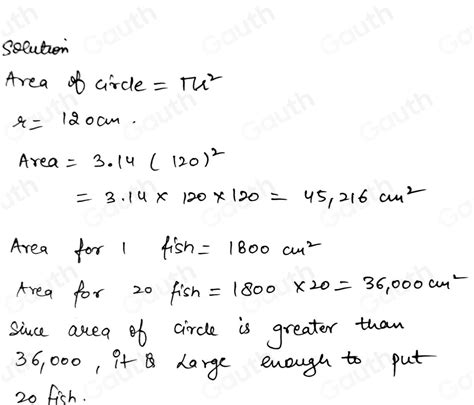 Solution
Area of circle = πr²
r = 120cm.
Area = 3.14 ( 120)²
= 3.14 × 120 × 120 = 45,216 cm²
Area for 1 fish = 1800 cm²
Area for 20 fish = 1800 × 20 = 36,000 cm²
Since area of circle is greater than
36,000, it is large enough to put
20 fish.